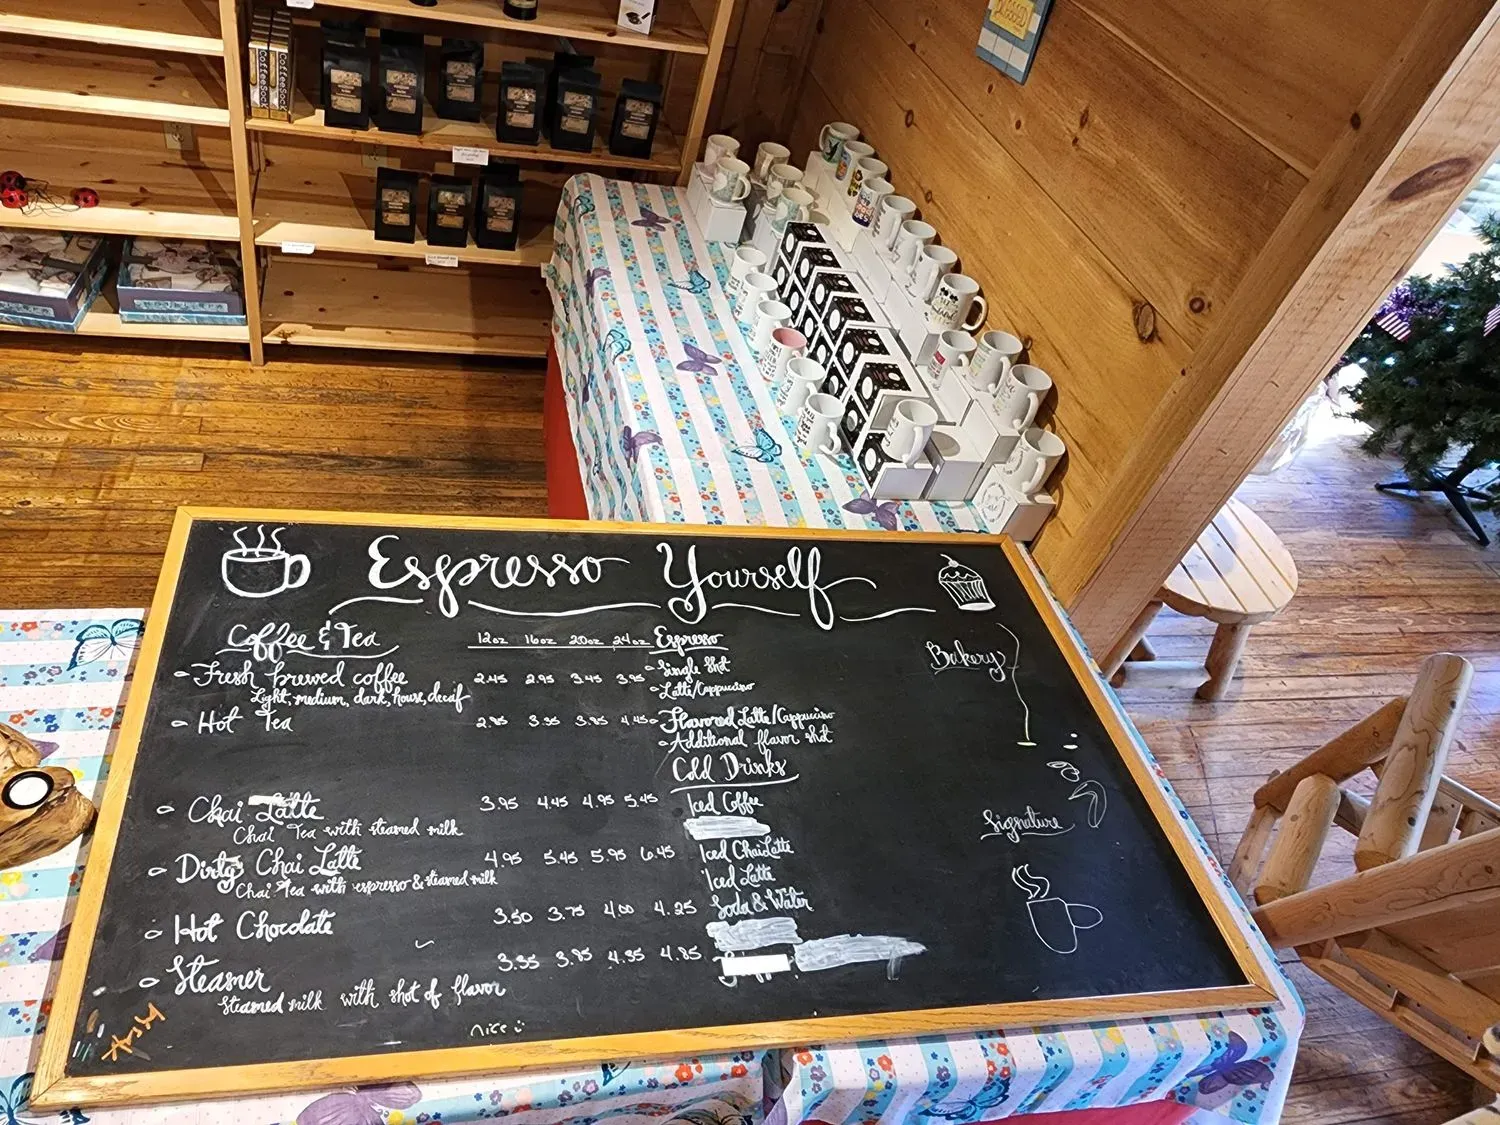 CoffeeSock
CoffeeSock
Espresso Yourself
Coffee & Tea
12oz 16oz 20oz 24oz
- Fresh brewed coffee 2.45 2.95 3.45 3.95
Light, medium, dark, house, decaf
- Hot Tea 2.95 3.35 3.85 4.45
- Chai Latte 3.95 4.45 4.95 5.45
Chai Tea with steamed milk
- Dirty Chai Latte 4.95 5.45 5.95 6.45
Chai Tea with espresso & steamed milk
- Hot Chocolate 3.50 3.75 4.00 4.25
- Steamer 3.35 3.85 4.35 4.85
Steamed milk with shot of flavor
nice :)
Espresso
- Single Shot
- Latte/Cappuccino
- Flavored Latte/Cappuccino
- Additional flavor shot
Cold Drinks
Iced Coffee
Iced Chai Latte
Iced Latte
Soda & Water
Bakery
Signature